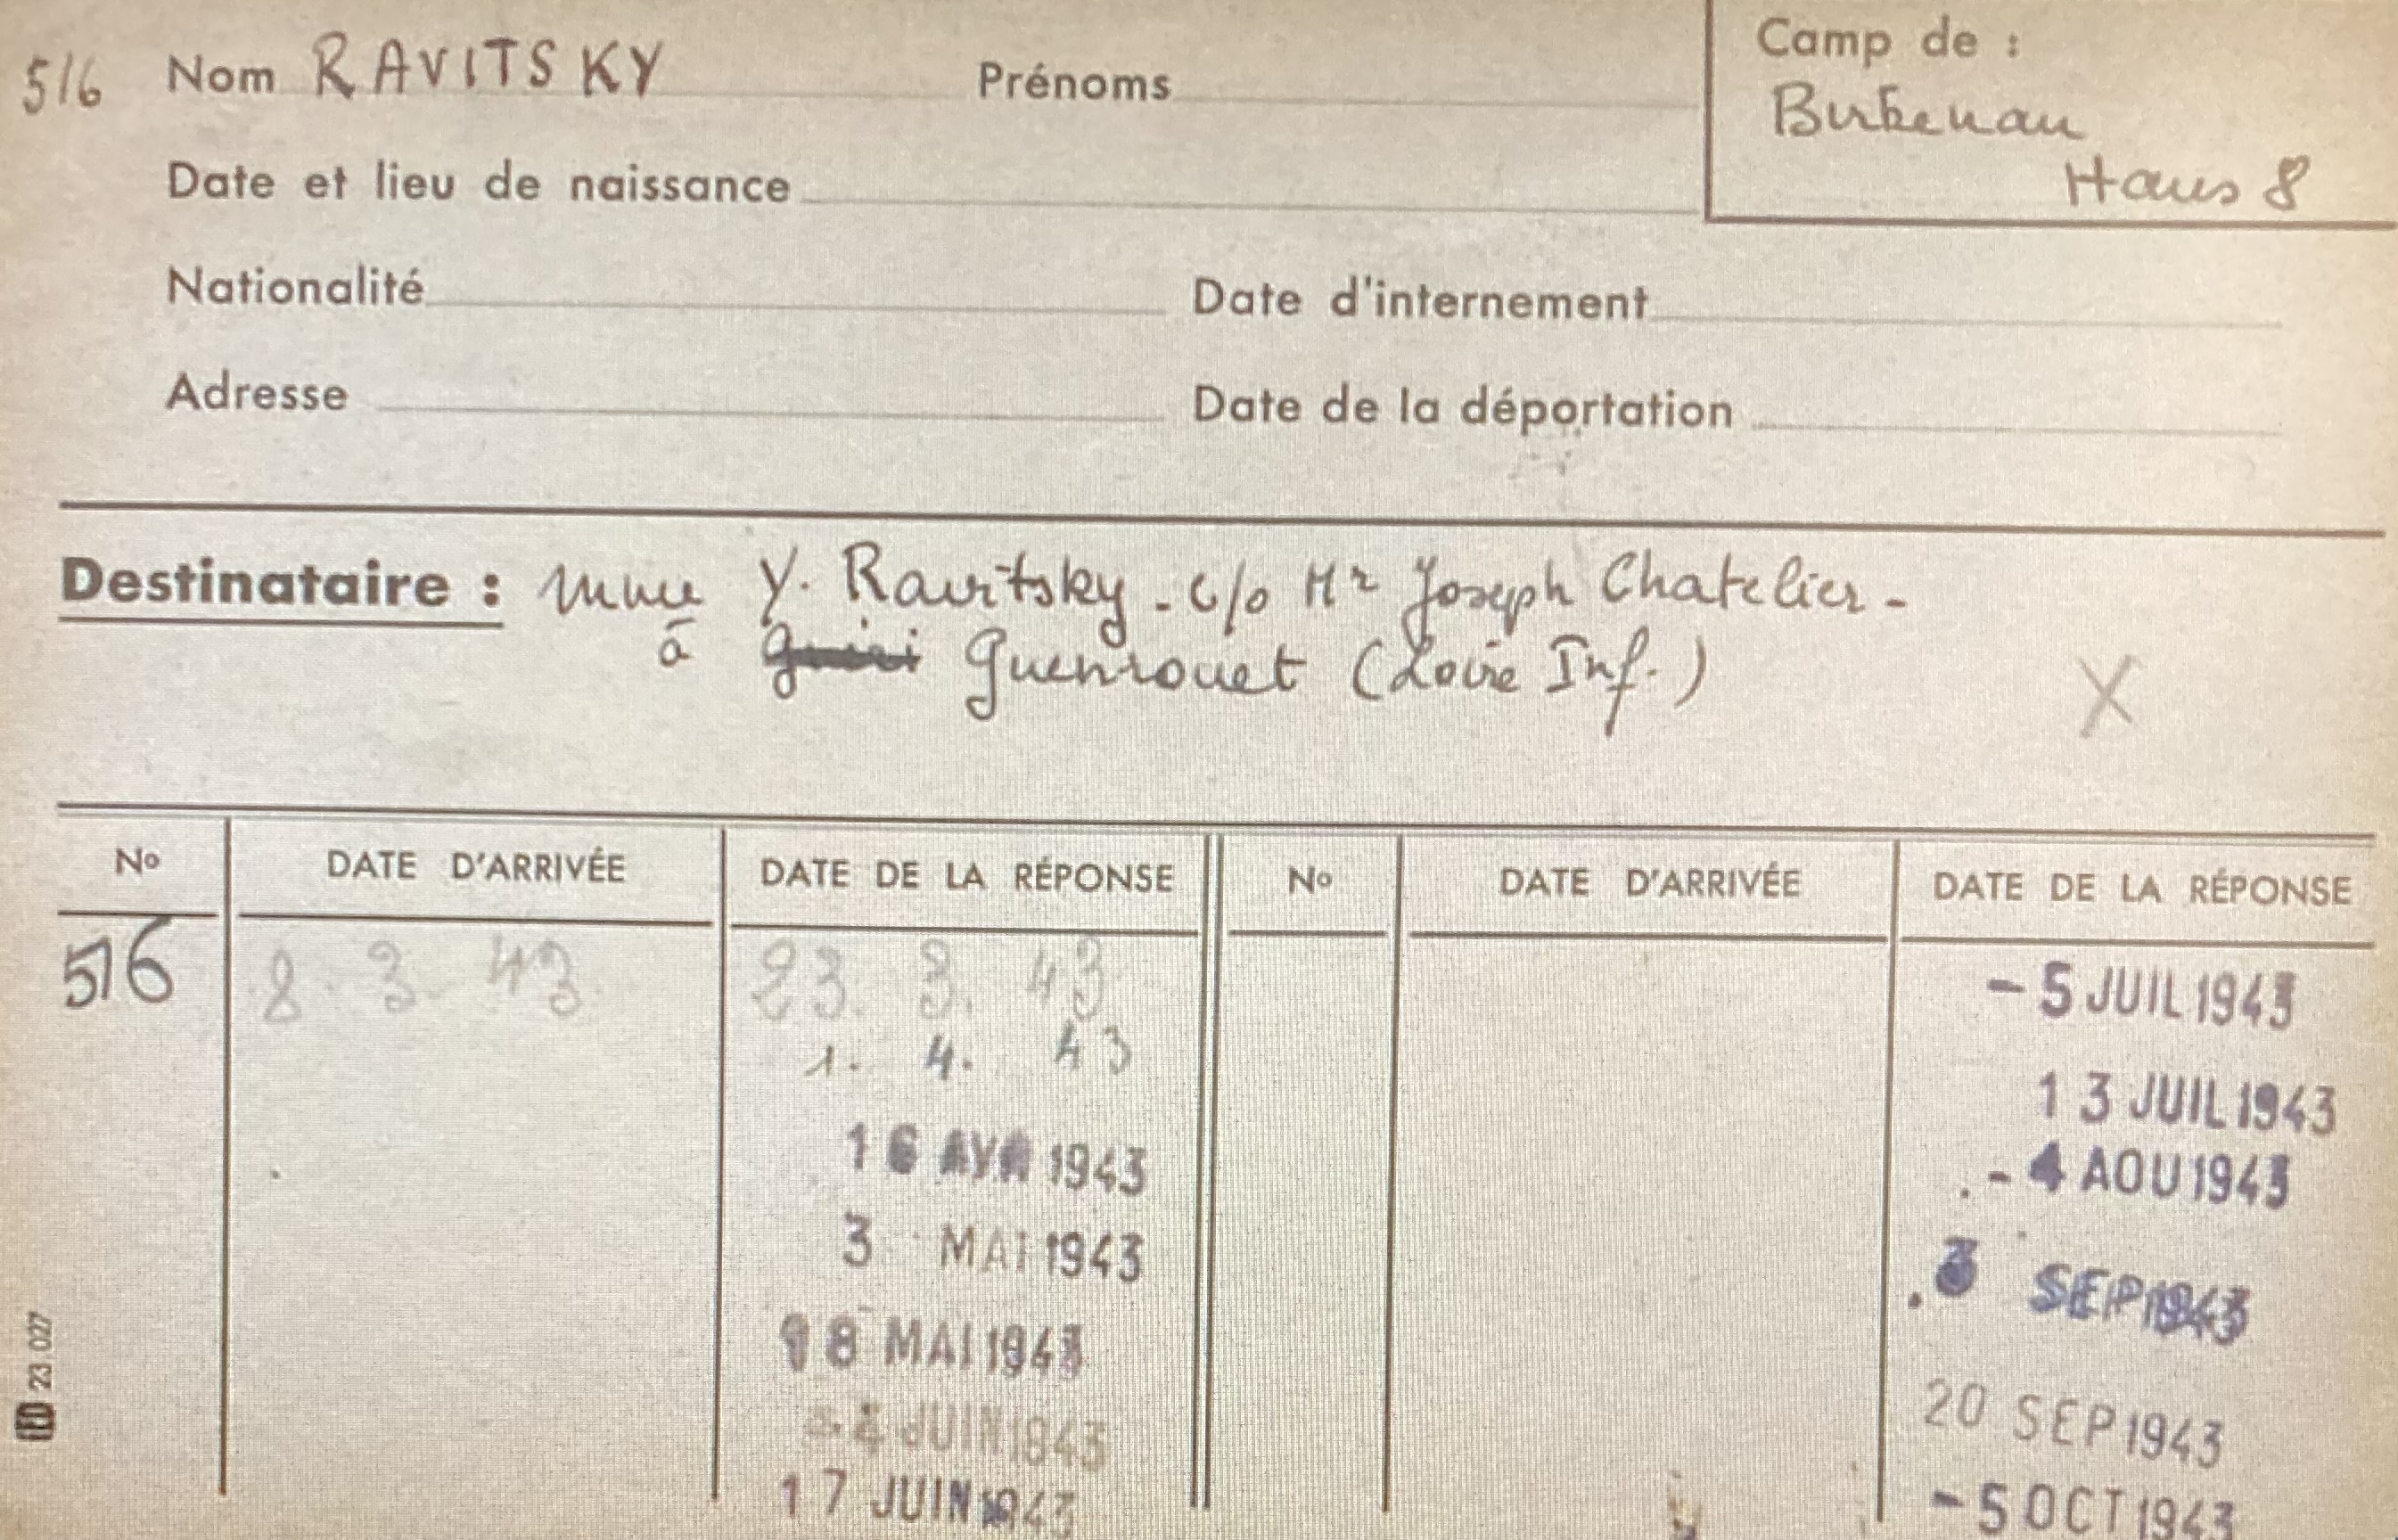 516 Nom RAVITSKY Prénoms
Camp de :
Birkenau
Haus 8
Date et lieu de naissance
Nationalité Date d'internement
Adresse Date de la déportation
Destinataire : Mme Y. Ravitsky - c/o Mr Joseph Chatelier -
à Guenrouet (Loire Inf.)
X
No DATE D'ARRIVÉE DATE DE LA RÉPONSE No DATE D'ARRIVÉE DATE DE LA RÉPONSE
516 8. 3. 43. 23. 3. 43 - 5 JUIL 1943
1. 4. 43
13 JUIL 1943
16 AVR 1943 - 4 AOU 1943
3 MAI 1943 3 SEP 1943
18 MAI 1943
- 4 JUIN 1943 20 SEP 1943
17 JUIN 1943 - 5 OCT 1943
IED 23.027